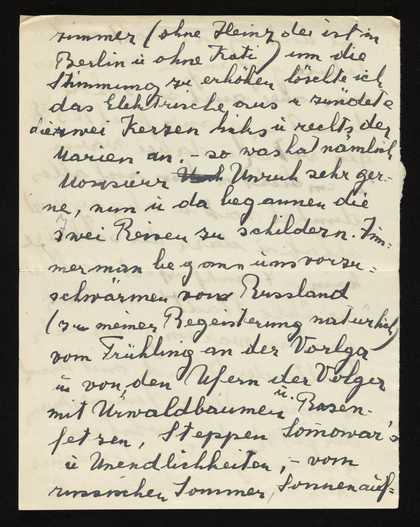 zimmer (ohne Heinz der ist in
Berlin u ohne Kati) um die
Stimmung zu erhöhen löschte ich
das Elektrische aus u zündete
die zwei Kerzen links u rechts der
Marien an, – so was hat nämlich
Monsieur Unruh sehr ger-
ne, nun u da begannen die
zwei Reisen zu schildern. Zim-
merman begann uns vorzu-
schwärmen von Russland
(zu meiner Begeisterung natürlich)
vom Frühling an der Vorlga
u von den Ufern der Volger
mit Urwaldbäumen u. Rasen-
fetzen, Steppen Somowar's
u Unendlichkeiten, – vom
russischen Sommer, Sonnenauf-